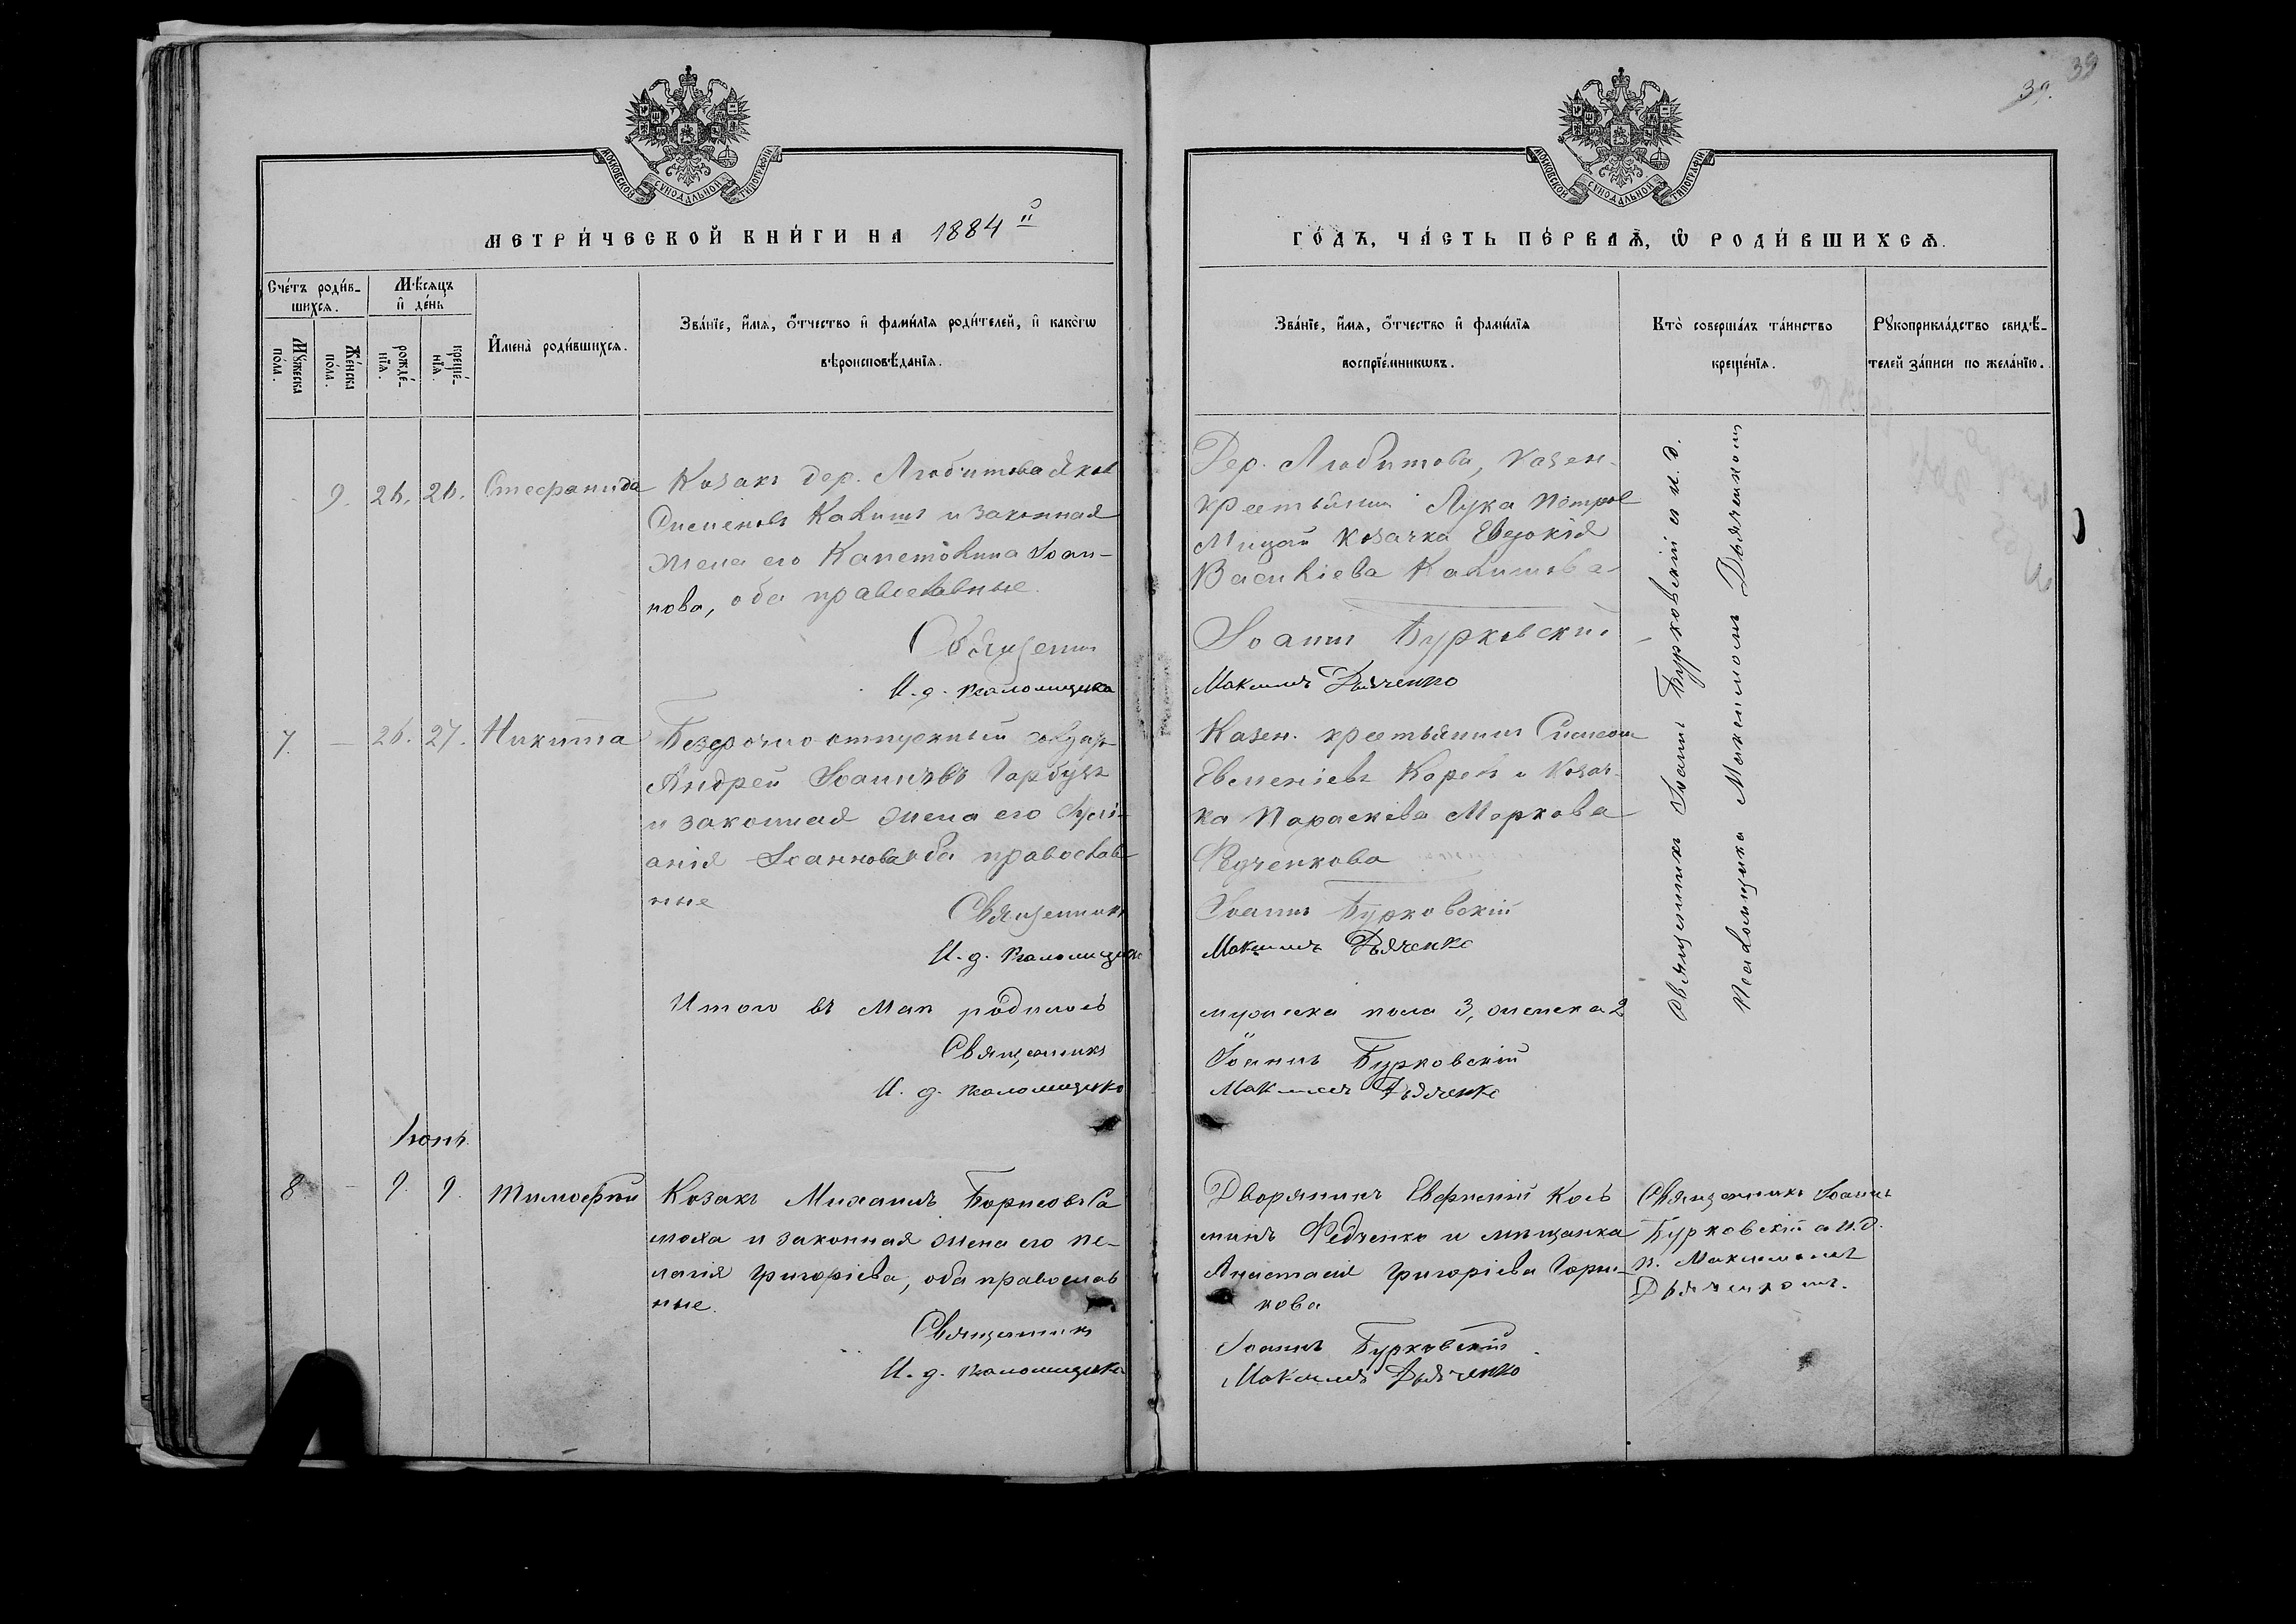 39
39.
МОСКОВСКОЙ СѴНОДАЛЬНОЙ ТИПОГРАФІИ
МОСКОВСКОЙ СѴНОДАЛЬНОЙ ТИПОГРАФІИ
МЕТРИ́ЧЕСКОЙ КНИ́ГИ НА 1884й
ГО́ДЪ, ЧА́СТЬ ПЕ́РВАѦ, Ѿ РОДИ́ВШИХСѦ.
Сче́тъ роди́в-
шихсѧ.
Мѣ́сѧцъ
и҆ де́нь
Мꙋ́жеска
по́ла.
Же́нска
по́ла.
рожде́-
нїѧ.
креще́-
нїѧ.
И҆мена̀ роди́вшихсѧ.
Зва́нїе, и҆́мѧ, ѻ҆́тчество и҆ фамі́лїѧ роди́телей, и҆ како́гѡ
вѣроисповѣ́данїѧ.
Зва́нїе, и҆́мѧ, ѻ҆́тчество и҆ фамі́лїѧ
воспрїе́мникѡвъ.
Кто̀ соверша́лъ та́инство
креще́нїѧ.
Рꙋкоприкла́дство свидѣ́-
телей за́писи по жела́нїю.
9. 26. 26. Стефанида
Козакъ дер. Любитова Яковъ
Калишъ и законная
жена его Капетолина Іоан-
нова, оба православные.
Священникъ
И. д. псаломщика
Дер. Любитова, казен.
крестьянинъ Лука Петровъ
Мицай козачка Евдокія
Василіева Калишова
Іоаннъ Бурковскій
Максимъ Дьяченко
Священникъ Іоаннъ Бурковскій и и. д.
псаломщика Максимомъ Дьяченкомъ
7. — 26. 27. Никита
Безсрочно отпускный
Андрей Іоанновъ Гарбузъ
и законная жена его Іулі-
анія Іоаннова оба православ-
ные
Священникъ
И. д. псаломщика
Казен. крестьянинъ Симеонъ
Евменіевъ и козач-
ка Параскева Маркова
Федченкова
Іоаннъ Бурковскій
Максимъ Дьяченко
Итого въ Маи родилось
мужеска пола 3, женска 2
Священникъ
И. д. псаломщика
Іоаннъ Бурковскій
Максимъ Дьяченко
Іюнь
8 — 9. 9. Тимофей
Козакъ Михаилъ Борисовъ Са
моха и законная жена его Пе-
лагія Григоріева, оба православ
ные.
Священникъ
И. д. псаломщика
Дворянинъ Евфимій Кось
минъ Федченко и мѣщанка
Анастасія Григоріева Гори-
кова
Іоаннъ Бурковскій
Максимъ Дьяченко
Священникъ Іоаннъ
Бурковскій а и.д.
п. Максимомъ
Дьяченкомъ.